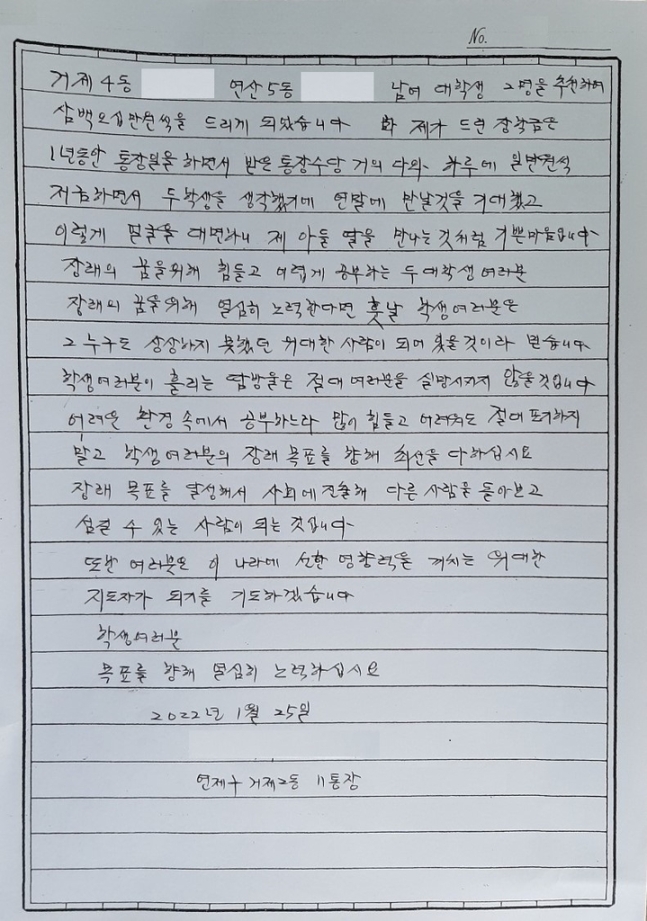 No.
거제4동 연산5동 남여 대학생 2명을 추천하여
삼백오십만원씩을 드리게 되었습니다 제가 드린 장학금은
1년동안 통장일을 하면서 받은 통장수당 거의 다와 하루에 일만원씩
저금하면서 두학생을 생각했기에 연말에 만날것을 기대했고
이렇게 얼굴을 대면하니 제 아들 딸을 만나는것처럼 기쁜마음입니다
장래의 꿈을위해 힘들고 어렵게 공부하는 두대학생 여러분
장래의 꿈을위해 열심히 노력한다면 훗날 학생여러분은
그 누구도 상상하지 못했던 위대한 사람이 되어 있을것이라 믿습니다
학생여러분이 흘리는 땀방울은 절대 여러분을 실망시키지 않을것입니다
어려운 환경 속에서 공부하느라 많이 힘들고 어려워도 절대 포기하지
말고 학생여러분의 장래 목표를 향해 최선을 다하십시요
장래 목표를 달성해서 사회에 진출해 다른사람을 돌아보고
섬길 수 있는 사람이 되는것입니다
또한 여러분은 이 나라에 선한 영향력을 끼치는 위대한
지도자가 되기를 기도하겠습니다
학생여러분
목표를 향해 열심히 노력하십시요
2022년 1월 25일
연제구 거제2동 11통장